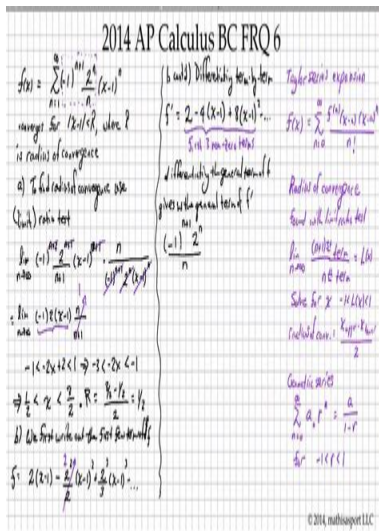 2014 AP Calculus BC FRQ 6
f(x) = ∞ Σ n=1 (-1)^(n+1) 2^n/n (x-1)^n
converges for |x-1|<R, where R
is radius of convergence
a) To find radius of convergence use
(limit) ratio test
lim n→∞ (-1)^(n+2) 2^(n+1)/(n+1) (x-1)^(n+1) · n/((-1)^(n+1) 2^n (x-1)^n)
= lim n→∞ (-1)2(x-1) n/n+1
-1<-2x+2<1 ⇒ -3<-2x<-1
⇒ 1/2 < x < 3/2, R = (3/2 - 1/2)/2 = 1/2
b) We first write out the first few terms of f
f = 2(x-1) - 2^2/2 (x-1)^2 + 2^3/3 (x-1)^3 - ...
(b cont'd) Differentiating term-by-term
f' = 2 - 4(x-1) + 8(x-1)^2 - ...
first 3 non-zero terms
differentiating the general term of f
gives us the general term of f'
(-1)^(n+1) 2^n
n
Taylor series expansion
f(x) = ∞ Σ n=0 f^(n)(x) (x-x)^n / n!
Radius of convergence
found with limit ratio test
lim n→∞ (n+1)st term / nth term = L(x)
Solve for x -1<L(x)<1
radius conv. = (x upper - x lower)/2
Geometric series
∞ Σ n=0 a r^n = a/(1-r)
for -1<r<1
© 2014, mathisasport LLC